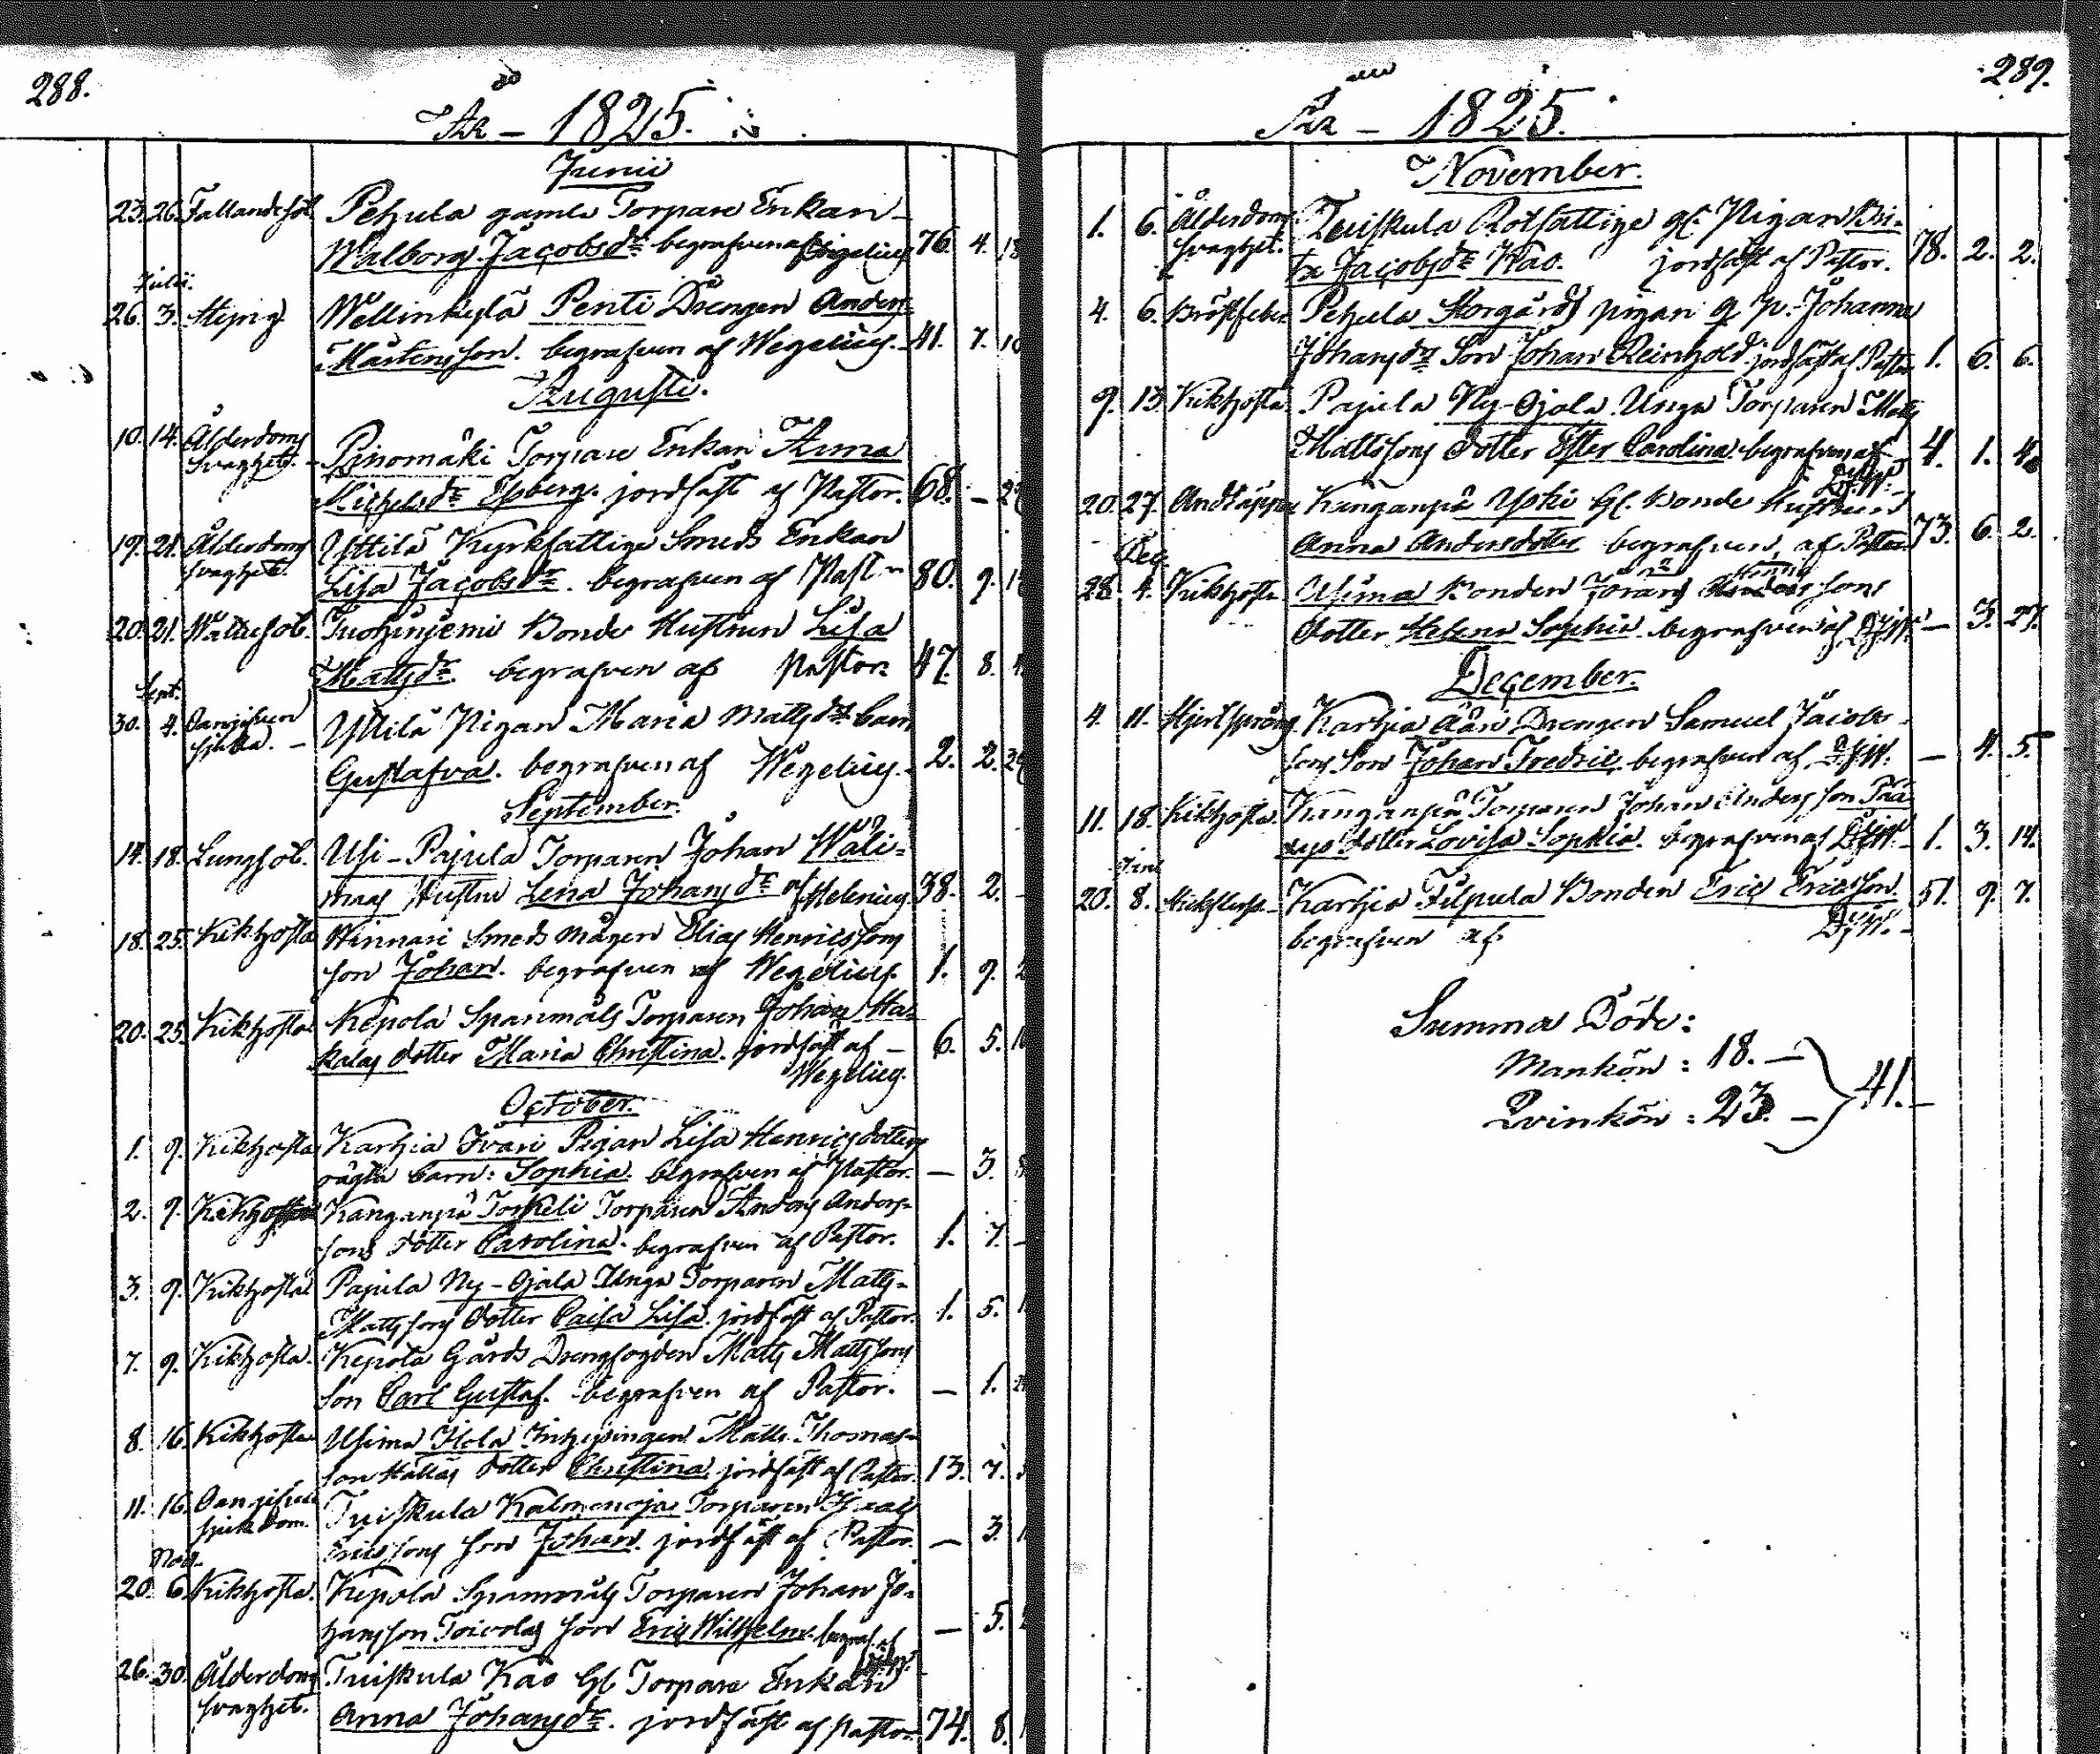 288.
År - 1825.
Junii
23. 26. Fallandesot Pehula gamla Torpare Enkan
Walborg Jacobsdr begrafven af Wegelius 76. 4. 18
Julii.
26. 3. Wellinkylä Penti Drengen Anders
Mårtensson. begrafven af Wegelius. 41. 7. 10
Augusti.
10. 14. Ålderdoms Pinomäki Torpare Enkan Anna
svaghet. Michelsdr Esberg. jordfäst af Pastor. 68. -
19. 21. Ålderdoms Yttilä Kyrkfattige Smeds Enkan
svaghet. Lisa Jacobsdr. begrafven af Past. 80. 9.
20. 21. Wattusot. Tuohiniemi Bonde Hustrun Lisa
Mattsdr. begrafven af Pastor 47. 8.
Sept.
30. 4. Oangifven Yttilä Pigan Maria Mattsdrs barn
sjukd. - Gustafva. begrafven af Wegelius. 2. 2.
September.
14. 18. Lungsot. Usi-Pajula Torparen Johan Wäli-
mäs Hustru Lena Johansdr af Helenius. 38. 2. -
18. 25. Kikhosta Winnari Smeds mågen Elias Henricssons
son Johan. begrafven af Wegelius. 1. 9.
20. 25. Kikhosta Kepola Spanmåls Torparen Johan Ha-
kalas dotter Maria Christina. jordfäst af - 6. 5.
Wegelius.
October.
1. 9. Kikhosta Karhia Ivari Pigan Lisa Henricsdotters
oägta barn: Sophia. begrafven af Pastor. - 3.
2. 9. Kikhosta Kanganpä Torkeli Torparen Anders Anders-
sons dotter Carolina. begrafven af Pastor. 1. 7. -
3. 9. Kikhosta Pajula Ny-Ojala Unga Torparen Matts
Mattssons dotter Caisa Lisa. jordfäst af Pastor. 1. 5.
7. 9. Kikhosta. Kepola Gårds Drengfogden Matts Mattssons
son Carl Gustaf. begrafven af Pastor. - 1.
8. 16. Kikhosta Usima Ilola Inhysingen Matts Thomas-
son Hällas dotter Christina. jordfäst af Pastor. 13. 7.
11. 16. Oangifven Tuiskula Kalmenoja Torparen Isaac
sjukdom. Ericssons son Johan. jordfäst af Pastor. - 3.
Nov.
20. 6. Kikhosta. Kepola Spanmåls Torparen Johan Jo-
hansson Toivolas son Eric Wilhelm. begraf. af - 5.
26. 30. Ålderdoms Tuiskula Kao Gl Torpare Enkan
svaghet. Anna Johansdr. jordfäst af Pastor. 74. 8.
289.
År - 1825.
November.
1. 6. Ålderdoms Tuiskula Rotfattige gl. Pigan Bri-
svaghet. ta Jacobsdr Kao. jordfäst af Pastor. 78. 2. 2.
4. 6. Bröstfeber Pehula Storgårds pigan q. p. Johanna
Johansdrs Son Johan Reinhold. jordfäst af Pastor 1. 6. 6.
9. 13. Kikhosta Pajula Ny-Ojala Unga Torparen Matts
Mattssons dotter Ester Carolina. begrafven af 4. 1. 4.
20. 27. Andtäppa Kanganpä Yski Gl. Bonde Hustrun
Anna Andersdotter begrafven af Pastor 73. 6. 2.
Dec.
28. 4. Kikhosta Usima Bonden Jörans Henrics sons
dotter Helena Sophia. begrafven af - 3. 27.
December.
4. 11. Hjertsprång Karhia Ääri Drengen Samuel Jacobs-
sons Son Johan Fredric. begrafven af - 4. 5.
11. 18. Kikhosta. Kanganpä Torparen Johan Andersson Pää-
dotter Lovisa Sophia. begrafven af 1. 3. 14.
20. 8. Karhia Filpula Bonden Eric Ericsson. 51. 9. 7.
begrafven af
Summa Döde:
Mankön: 18. -
41. -
Qvinkön: 23. -